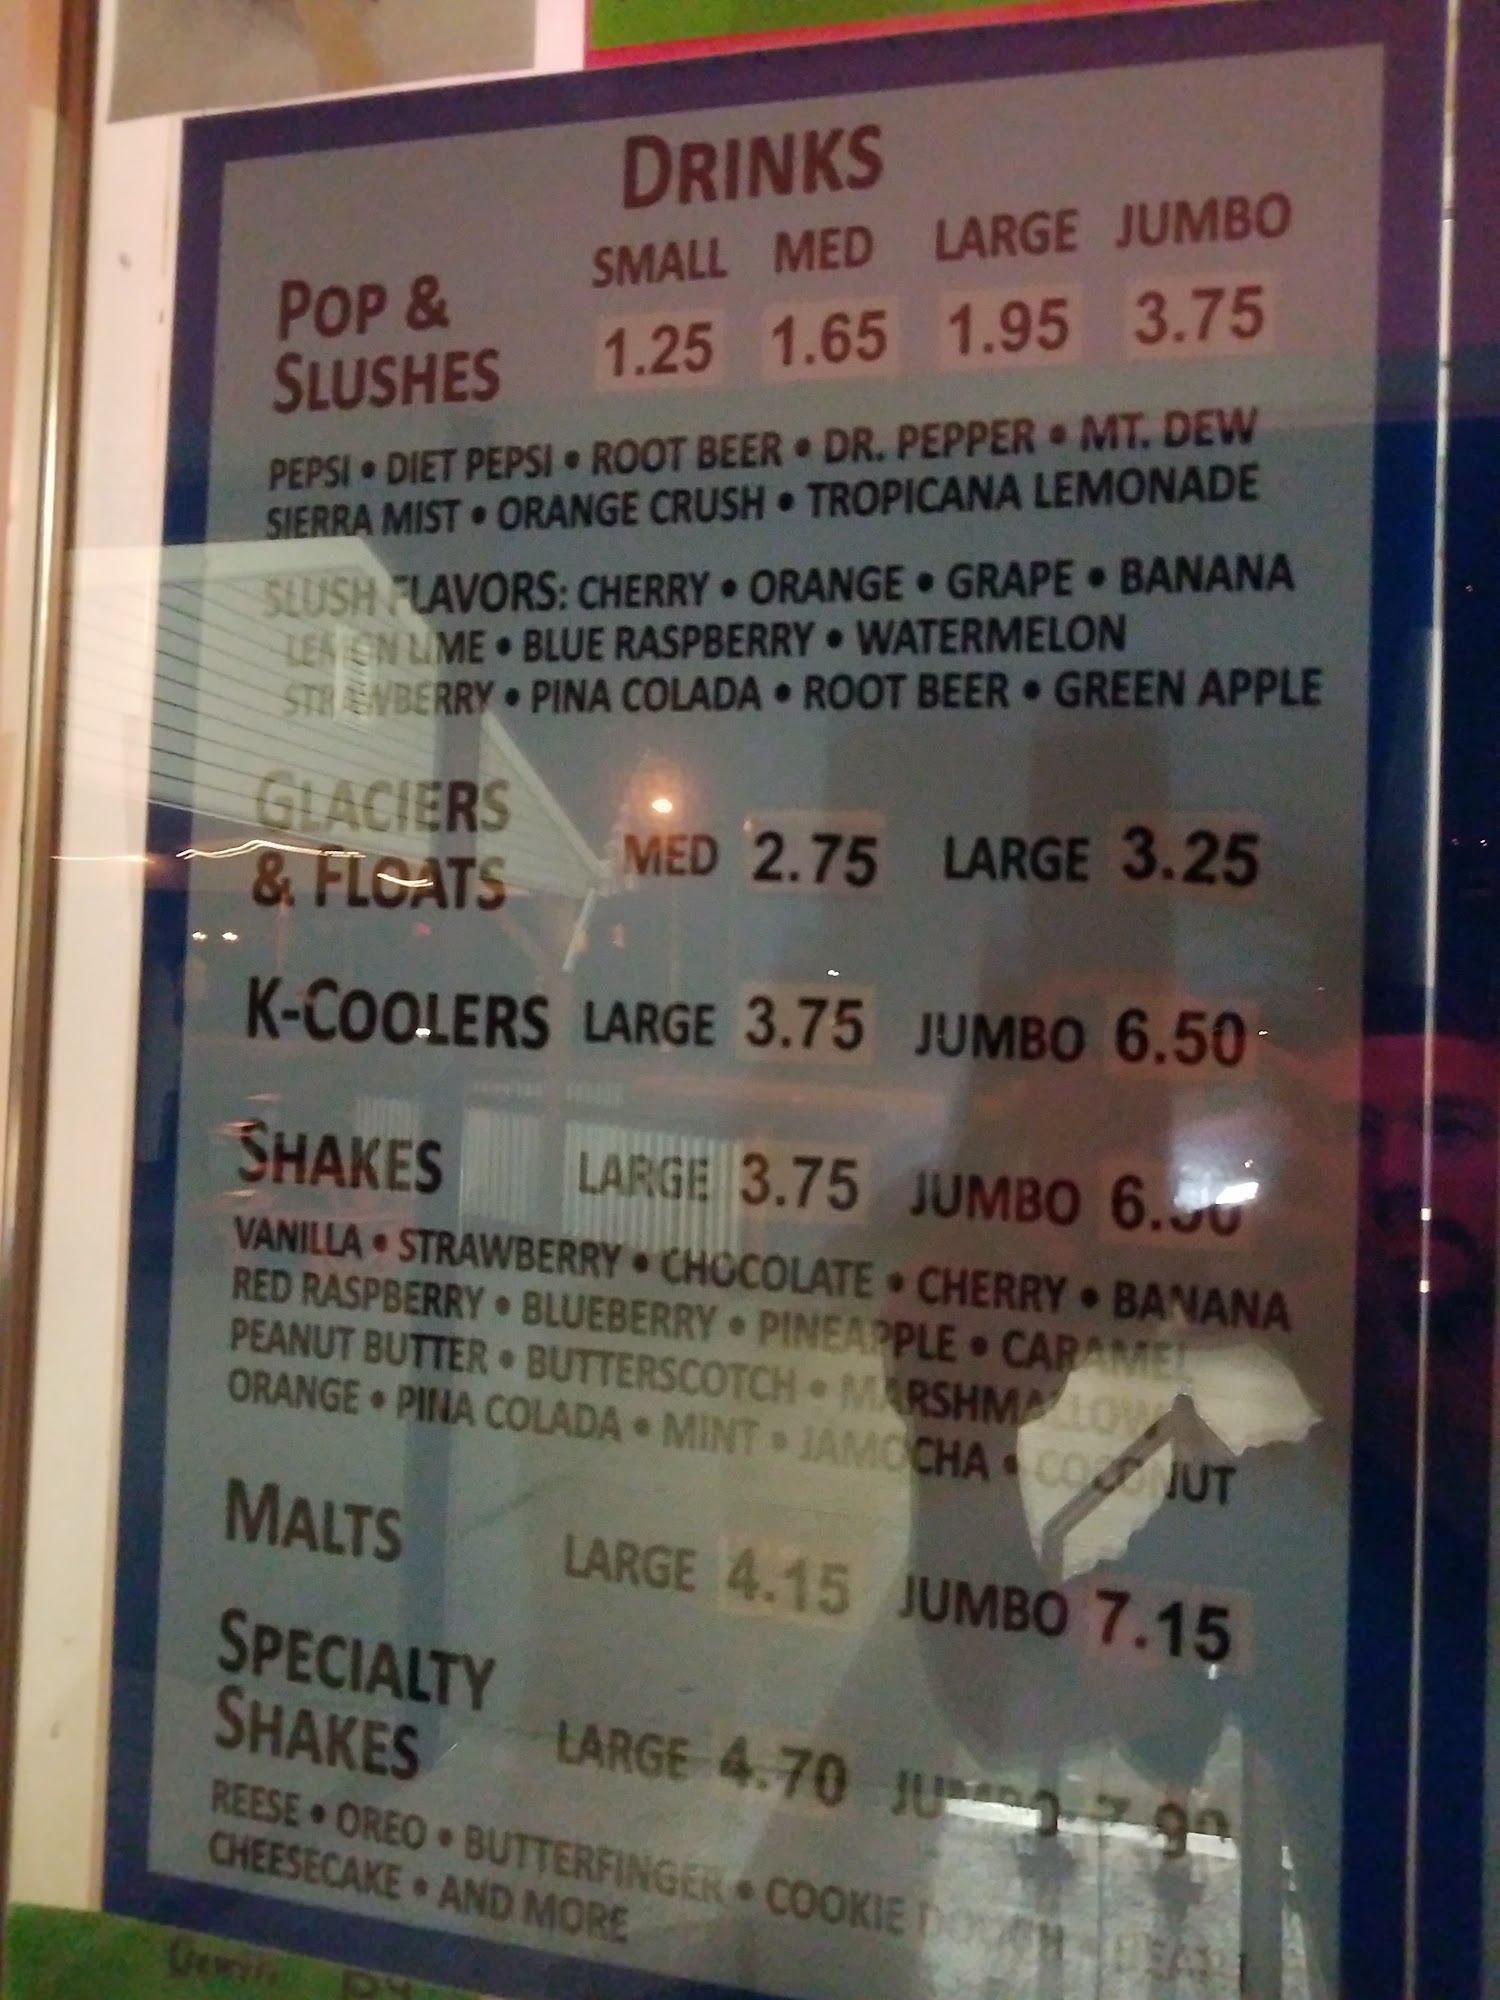 DRINKS
SMALL MED LARGE JUMBO
POP & SLUSHES 1.25 1.65 1.95 3.75
PEPSI • DIET PEPSI • ROOT BEER • DR. PEPPER • MT. DEW
SIERRA MIST • ORANGE CRUSH • TROPICANA LEMONADE
SLUSH FLAVORS: CHERRY • ORANGE • GRAPE • BANANA
LEMON LIME • BLUE RASPBERRY • WATERMELON
STRAWBERRY • PINA COLADA • ROOT BEER • GREEN APPLE
GLACIERS
& FLOATS MED 2.75 LARGE 3.25
K-COOLERS LARGE 3.75 JUMBO 6.50
SHAKES LARGE 3.75 JUMBO 6.50
VANILLA • STRAWBERRY • CHOCOLATE • CHERRY • BANANA
RED RASPBERRY • BLUEBERRY • PINEAPPLE • CARAMEL
PEANUT BUTTER • BUTTERSCOTCH • MARSHMALLOW
ORANGE • PINA COLADA • MINT • JAMOCHA • COCONUT
MALTS LARGE 4.15 JUMBO 7.15
SPECIALTY
SHAKES LARGE 4.70 JUMBO 7.90
REESE • OREO • BUTTERFINGER • COOKIE DOUGH •
CHEESECAKE • AND MORE